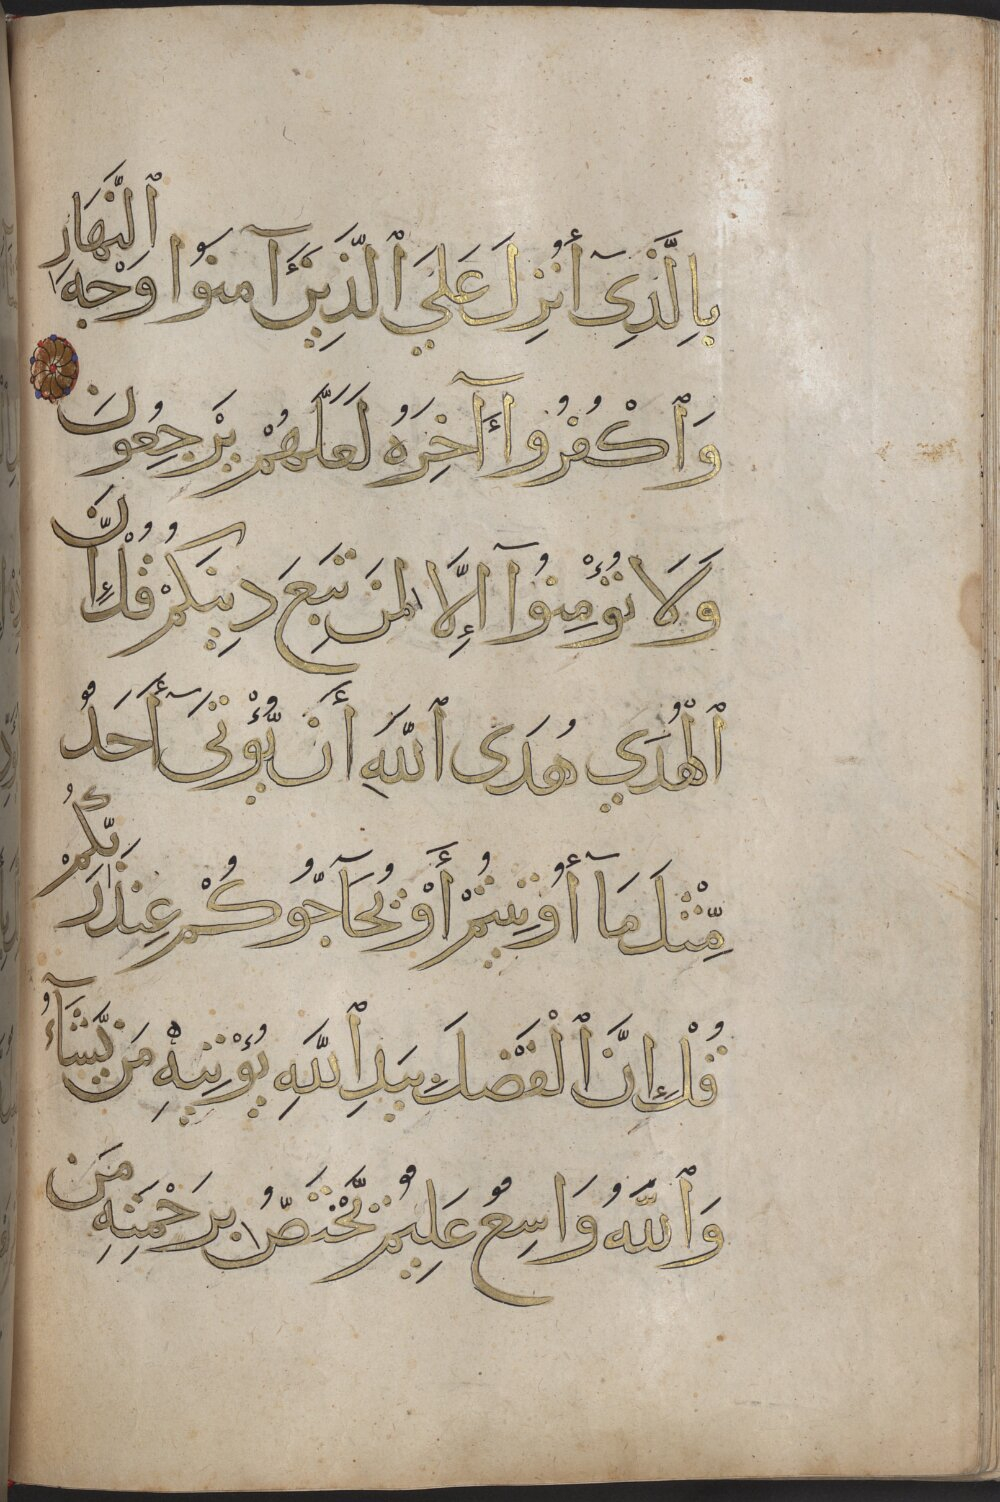 بِالَّذِىٓ أُنزِلَ عَلَي ٱلَّذِينَ ءَآمنُوا وَجْهَ ٱلنَّهَارِ
وَٱكْفُرُوا ءَآخِرَهُ لَعَلَّهُمْ يَرْجِعُونَ
وَلَا تُؤْمِنُوٓا إِلَّا لِمَن تَبِعَ دِينَكُمْ قُلْ إِنَّ
ٱلْهُدَي هُدَى ٱللَّهِ أَن يُّؤْتَىٓ أَحَدٌ
مِّثْلَ مَآ أُوتِيتُمْ أَوْ يُحَآجُّوكُمْ عِندَ رَبِّكُمْ
قُلْ إِنَّ ٱلْفَضْلَ بِيَدِ ٱللَّهِ يُؤْتِيهِ مَن يَّشَآءُ
وَٱللَّهُ وَاسِعٌ عَلِيمٌ يَّخْتَصُّ بِرَحْمَتِهِ مَن